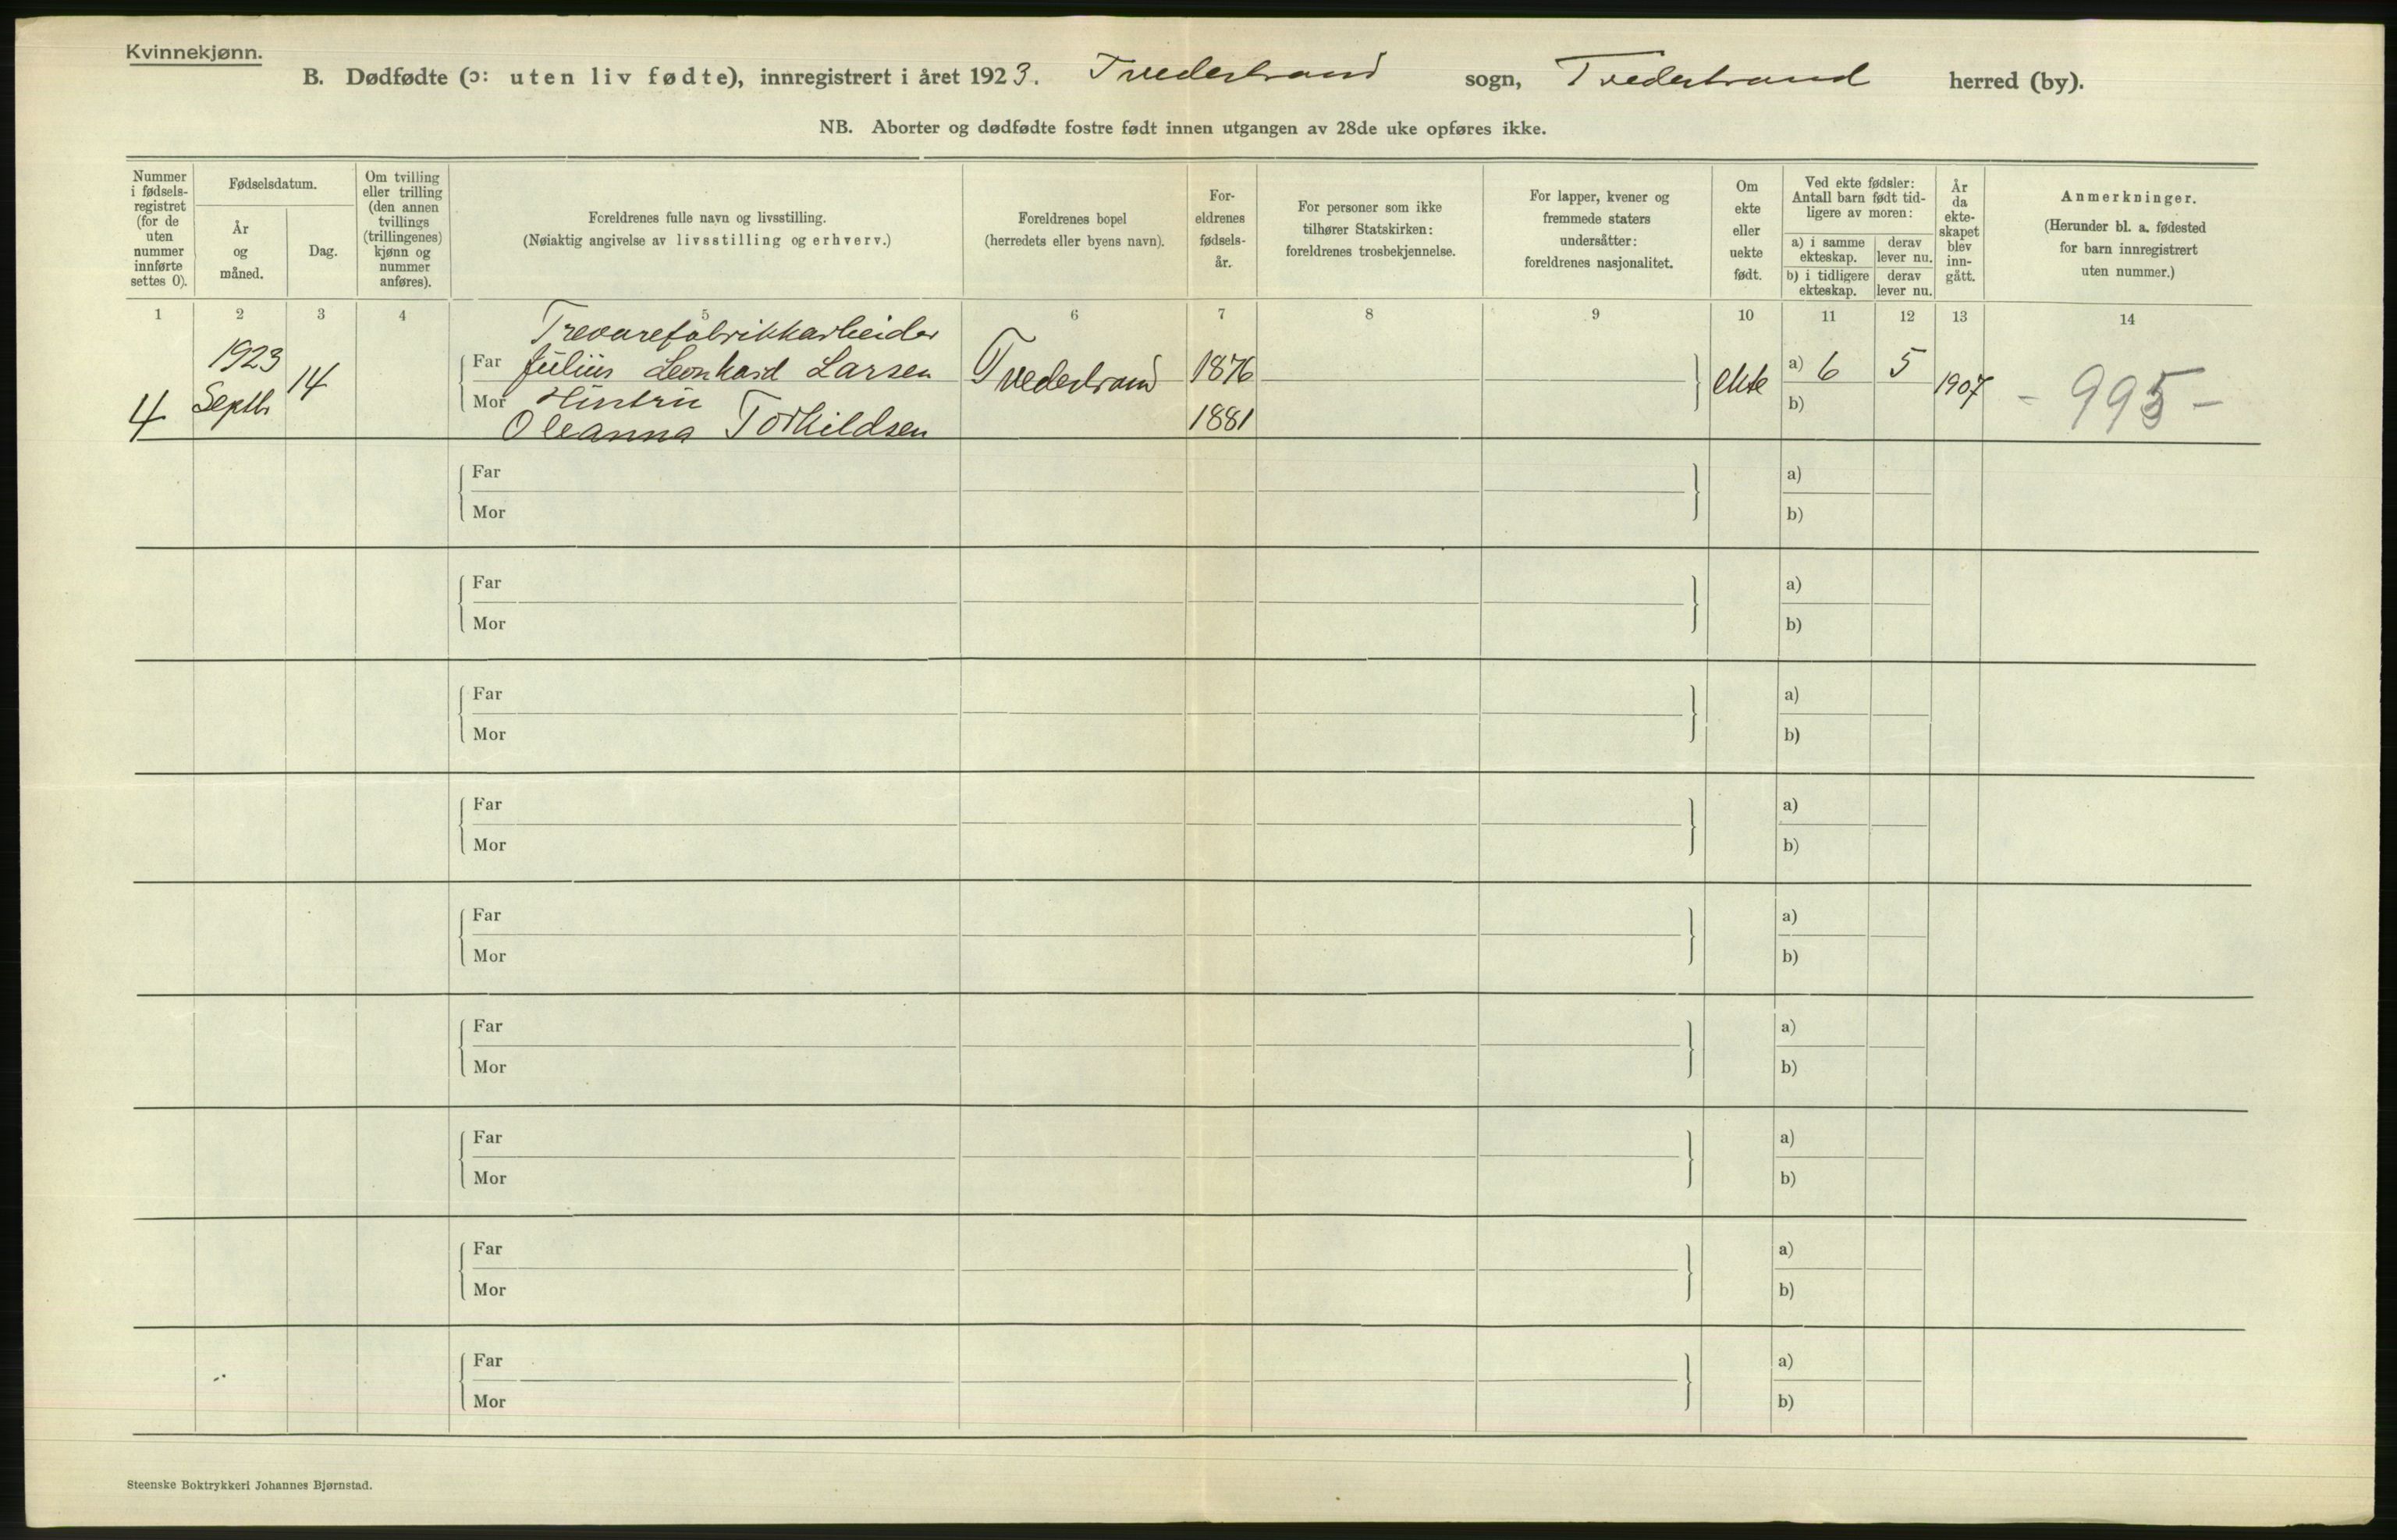 Kvinnekjønn.
B. Dødfødte (ɔ: uten liv fødte), innregistrert i året 1923. Tvedestrand sogn, Tvedestrand herred (by).
NB. Aborter og dødfødte fostre født innen utgangen av 28de uke opføres ikke.
Nummer i fødsels-registret (for de uten nummer innførte settes 0).
Fødselsdatum.
År og måned.
Dag.
Om tvilling eller trilling (den annen tvillings (trillingenes) kjønn og nummer anføres).
Foreldrenes fulle navn og livsstilling.
(Nøiaktig angivelse av livsstilling og erhverv.)
Foreldrenes bopel
(herredets eller byens navn).
For-eldrenes fødsels-år.
For personer som ikke
tilhører Statskirken:
foreldrenes trosbekjennelse.
For lapper, kvener og
fremmede staters
undersåtter:
foreldrenes nasjonalitet.
Om ekte eller uekte født.
Ved ekte fødsler:
Antall barn født tid-
ligere av moren:
a) i samme ekteskap.
derav lever nu.
b) i tidligere ekteskap.
derav lever nu.
År da ekte-skapet blev inn-gått.
Anmerkninger.
(Herunder bl. a. fødested
for barn innregistrert
uten nummer.)
1 2 3 4 5 6 7 8 9 10 11 12 13 14
Trevarefabrikkarbeider
1923 14 Far Julius Leonhard Larsen Tvedestrand 1876 ekte a) 6 5 1907 - 995 -
4 Septbr Mor Hustru b)
Oleanna Torkildsen 1881
Far a)
Mor b)
Far a)
Mor b)
Far a)
Mor b)
Far a)
Mor b)
Far a)
Mor b)
Far a)
Mor b)
Far a)
Mor b)
Far a)
Mor b)
Far a)
Mor b)
Steenske Boktrykkeri Johannes Bjørnstad.